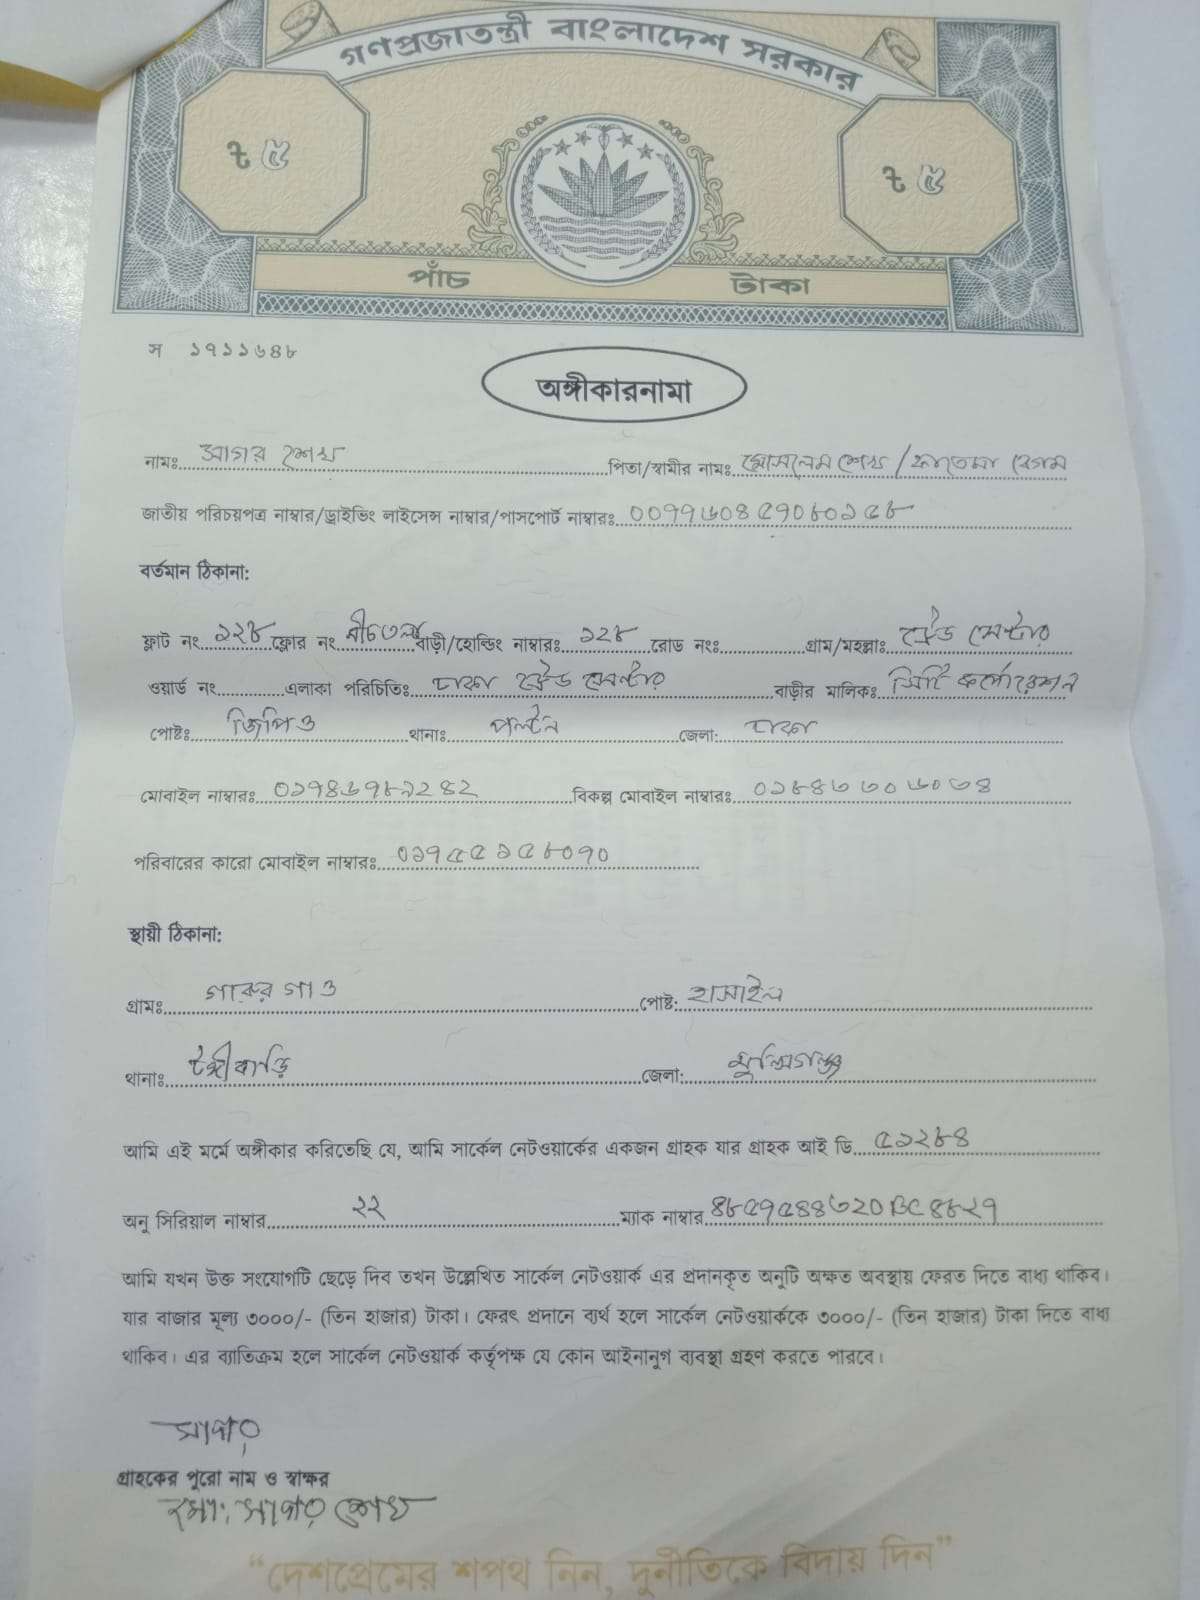 গণপ্রজাতন্ত্রী বাংলাদেশ সরকার
৳ ৫ ৳ ৫
পাঁচ টাকা
স ১৭১১৬৪৮
অঙ্গীকারনামা
নামঃ সাগর শেখ পিতা/স্বামীর নামঃ মোসলেম শেখ / ফাতেমা বেগম
জাতীয় পরিচয়পত্র নাম্বার/ড্রাইভিং লাইসেন্স নাম্বার/পাসপোর্ট নাম্বারঃ
বর্তমান ঠিকানা:
ফ্লাট নং ১২৮ ফ্লোর নং নীচতলা বাড়ী/হোল্ডিং নাম্বারঃ ১২৮ রোড নংঃ গ্রাম/মহল্লাঃ ট্রেড সেন্টার
ওয়ার্ড নং এলাকা পরিচিতিঃ ঢাকা ট্রেড সেন্টার বাড়ীর মালিকঃ সিটি কর্পোরেশন
পোষ্টঃ জিপিও থানাঃ পল্টন জেলা: ঢাকা
মোবাইল নাম্বারঃ ০১৭৪৬৭৮৯২৪২ বিকল্প মোবাইল নাম্বারঃ
পরিবারের কারো মোবাইল নাম্বারঃ ০১৭৫৫১৫৮০৭০
স্থায়ী ঠিকানা:
গ্রামঃ গারুর গাও পোষ্ট: হাসাইল
থানাঃ টঙ্গীবাড়ি জেলা: মুন্সিগঞ্জ
আমি এই মর্মে অঙ্গীকার করিতেছি যে, আমি সার্কেল নেটওয়ার্কের একজন গ্রাহক যার গ্রাহক আই ডি ৫১২৮৪
অনু সিরিয়াল নাম্বার ২২ ম্যাক নাম্বার
আমি যখন উক্ত সংযোগটি ছেড়ে দিব তখন উল্লেখিত সার্কেল নেটওয়ার্ক এর প্রদানকৃত অনুটি অক্ষত অবস্থায় ফেরত দিতে বাধ্য থাকিব।
যার বাজার মূল্য ৩০০০/- (তিন হাজার) টাকা। ফেরৎ প্রদানে ব্যর্থ হলে সার্কেল নেটওয়ার্ককে ৩০০০/- (তিন হাজার) টাকা দিতে বাধ্য
থাকিব। এর ব্যতিক্রম হলে সার্কেল নেটওয়ার্ক কর্তৃপক্ষ যে কোন আইনানুগ ব্যবস্থা গ্রহণ করতে পারবে।
সাগর
গ্রাহকের পুরো নাম ও স্বাক্ষর
মোঃ সাগর শেখ
“দেশপ্রেমের শপথ নিন, দুর্নীতিকে বিদায় দিন”